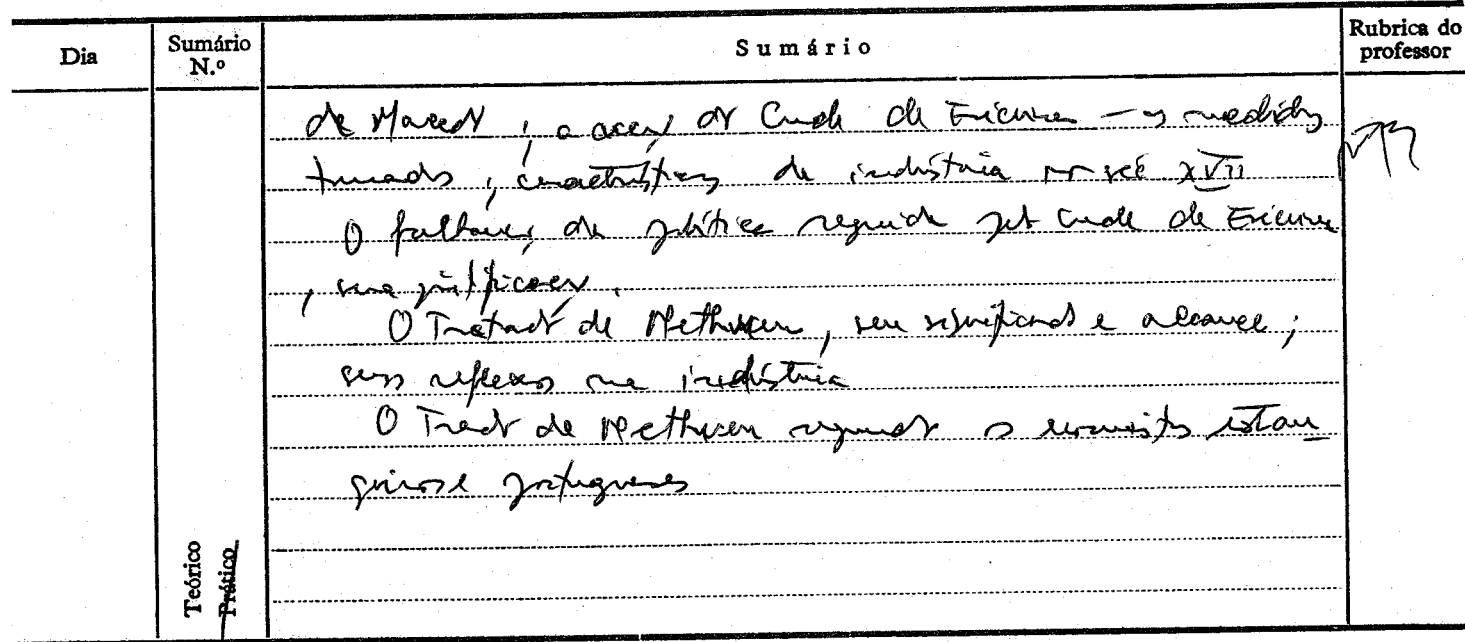 Dia
Sumário N.º
Sumário
Rubrica do professor
de Macedo, a acção do Conde de Ericeira – as medidas
tomadas, características da indústria no séc XVII
O falhanço da política seguida pelo Conde de Ericeira
, sua justificação.
O Tratado de Methuen, seu significado e alcance;
seus reflexos na indústria
O Tratado de Methuen segundo os economistas estran
geiros e portugueses
Teórico
Prático